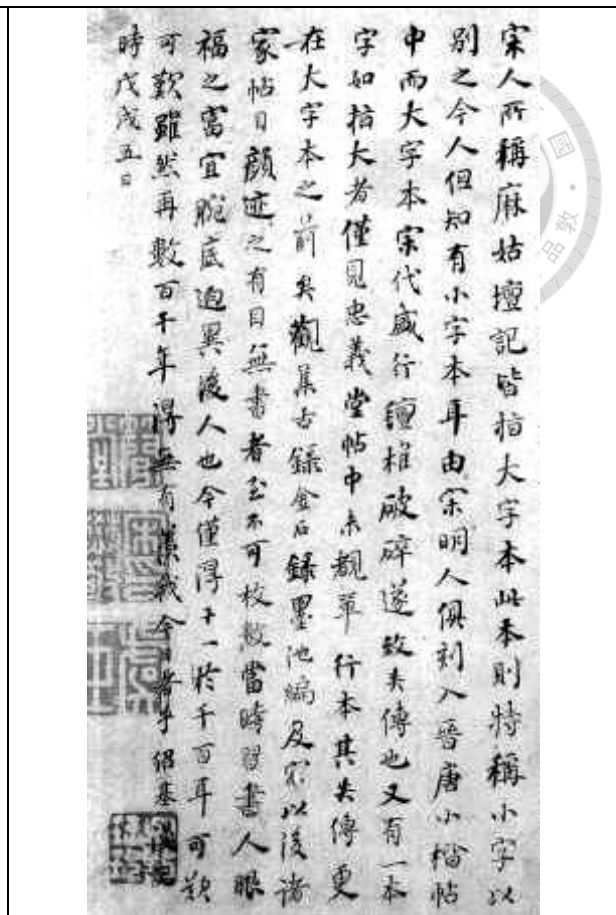 宋人所稱麻姑壇記皆指大字本此本則特稱小字以
別之今人但知有小字本耳由宋明人俱刻入晉唐小楷帖
中而大字本宋代盛行氊椎破碎遂致失傳也又有一本
字如指大者僅見忠義堂帖中未覩單行本其失傳更
在大字本之前矣觀集古錄金石錄墨池編及宋以後諸
家帖目顏迹之有目無書者至不可枚數當時習書人眼
福之富宜腕底迥異後人也今僅得十一於千百耳可歎
可歎雖然再數百千年得無有羨我今日者乎紹基 記
時戊戌五日